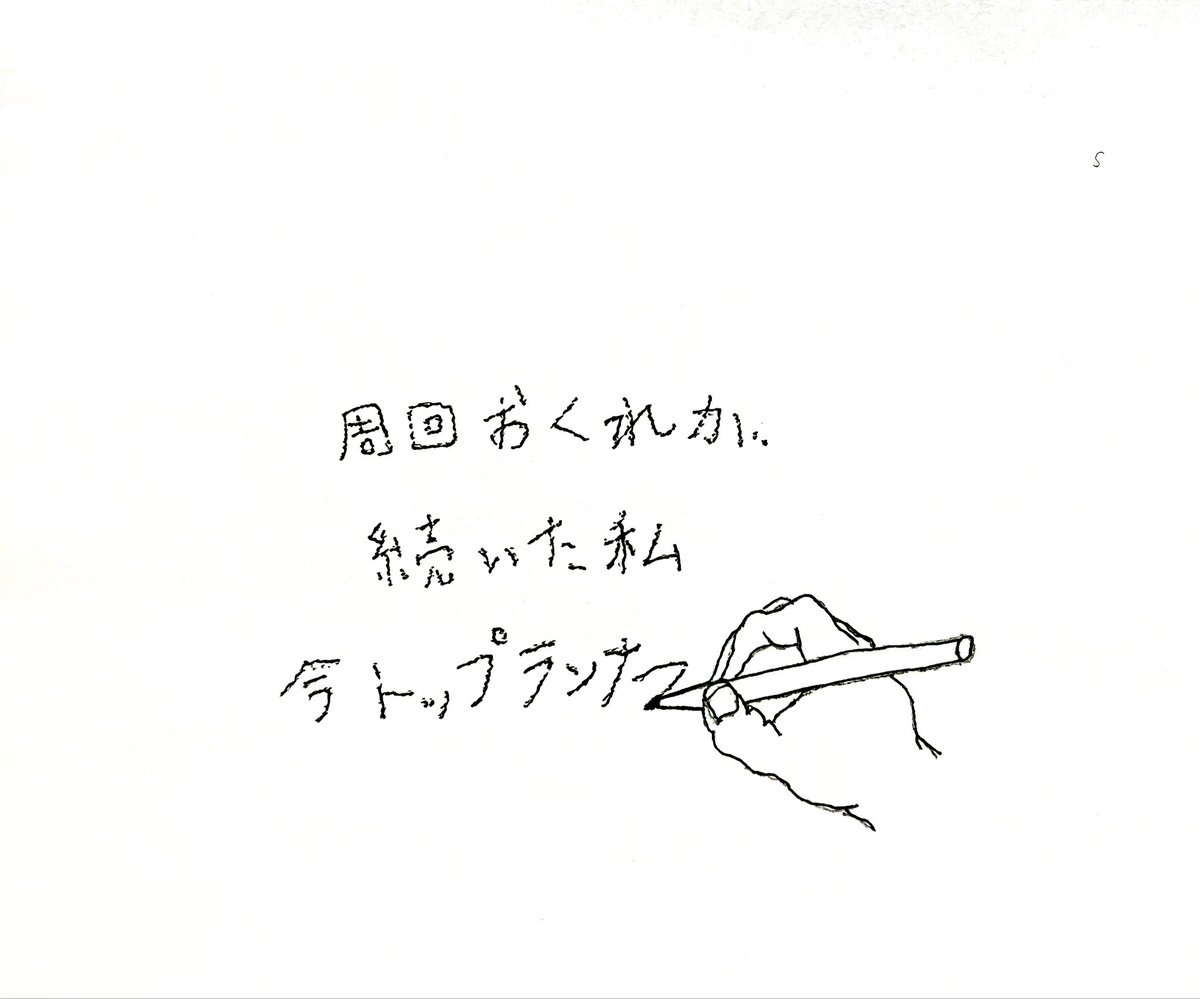 S
周回おくれ力に
続いた私
今トップランナー